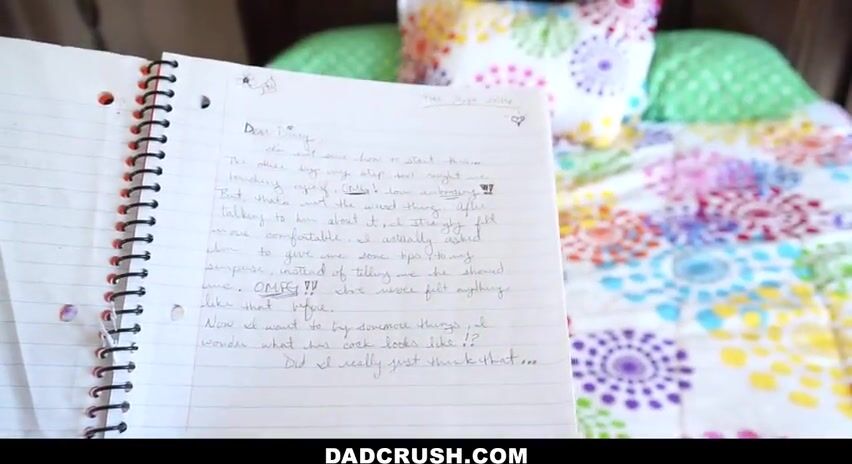 Dear Diary,
The other day my step dad caught me
touching myself. OMG! how embarrassing!!!
But, thats not the weird thing. After
talking to him about it, I strangely felt
more comfortable. I actually asked
him to give me some tips, to my
surprise, instead of telling me he showed
me. OMFG!! I have never felt anything
like that before.
Now I want to try some more things, I
wonder what his cock looks like!?
Did I really just think that...
DADCRUSH.COM